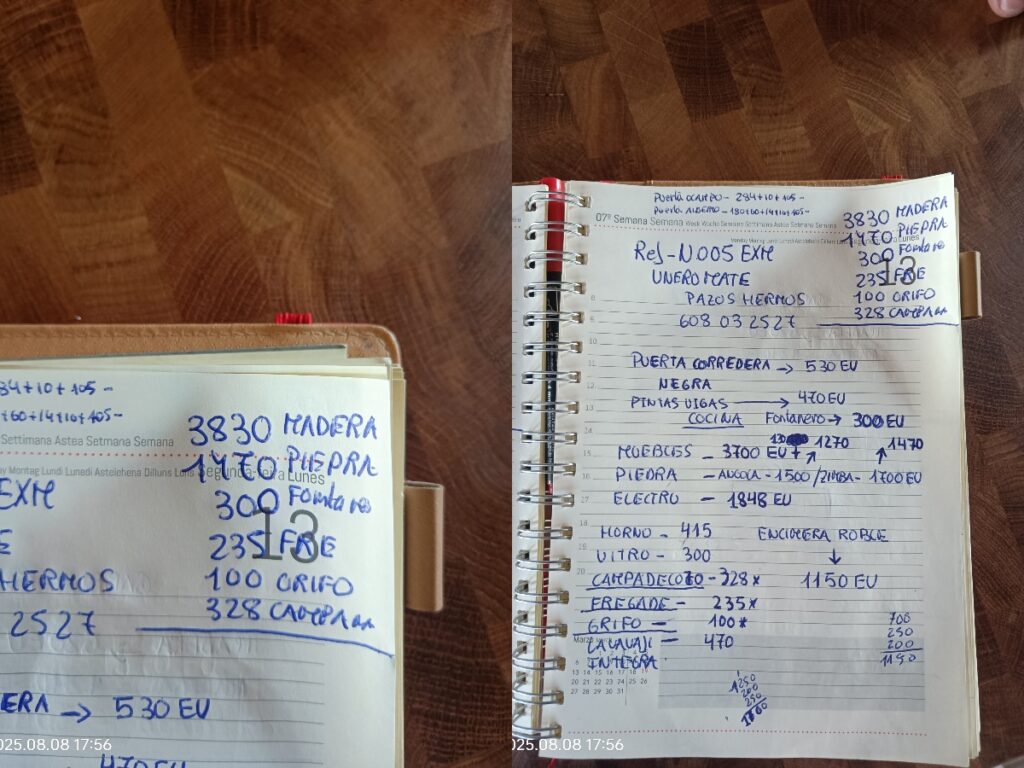 84+10+105-
+60+14+10+105-
Settimana Astea Setmana Semana
3830 MADERA
Montag Lundi Lunedi Astelehena Dilluns Luns Segunda-feira Lunes
1470 PIEPRA
EXM
300
13
235 FRE
HERMOS
100 GRIFO
2527
328 CAMPANA
ERA → 530 EU
470 EU
2025.08.08 17:56
Puerta OCAMPO - 284+10+105-
Puerta - 180+60+14+10+105-
07ª Semana Semana Week Woche Semaine Settimana Astea Setmana Semana
3830 MADERA
1470 PIEPRA
Ref-N005 EXM
300 Fontanero
13
UNERO MATE
235 FRE
PAZOS HERMOS
100 GRIFO
608 03 2527
328 CAMPANA
PUERTA CORREDERA → 530 EU
NEGRA
PINTAS VIGAS → 470 EU
COCINA Fontanero → 300 EU
130 1270 1470
MUEBLES - 3700 EU +
PIEDRA - ANGOLA - 1500 / ZIMBA - 1700 EU
ELECTRO - 1848 EU
HORNO - 415 ENCIMERA ROBLE
VITRO - 300
CAMPADECOTO - 328 x 1150 EU
FREGADE - 235 x
GRIFO - 100 x
LAVAVAJI - 470
INTEGRA
700
250
200
1150
1250
200
250
Marzo
13 14 15 16 17 18 19
20 21 22 23 24 25 26
27 28 29 30 31
2025.08.08 17:56